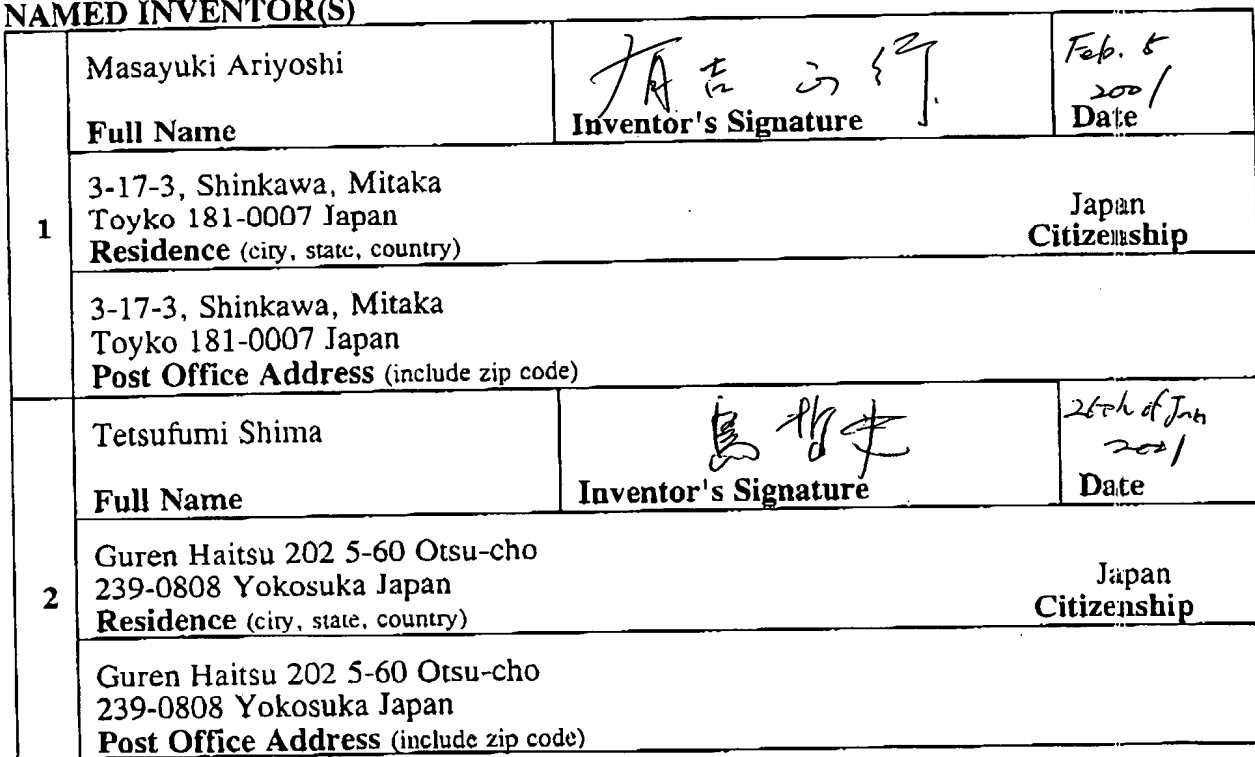 NAMED INVENTOR(S)
1
Masayuki Ariyoshi
Full Name
有吉 正行
Inventor's Signature
Feb. 5
2001
Date
3-17-3, Shinkawa, Mitaka
Toyko 181-0007 Japan
Residence (city, state, country)
Japan
Citizenship
3-17-3, Shinkawa, Mitaka
Toyko 181-0007 Japan
Post Office Address (include zip code)
2
Tetsufumi Shima
Full Name
島 哲史
Inventor's Signature
26th of Jan
2001
Date
Guren Haitsu 202 5-60 Otsu-cho
239-0808 Yokosuka Japan
Residence (city, state, country)
Japan
Citizenship
Guren Haitsu 202 5-60 Otsu-cho
239-0808 Yokosuka Japan
Post Office Address (include zip code)